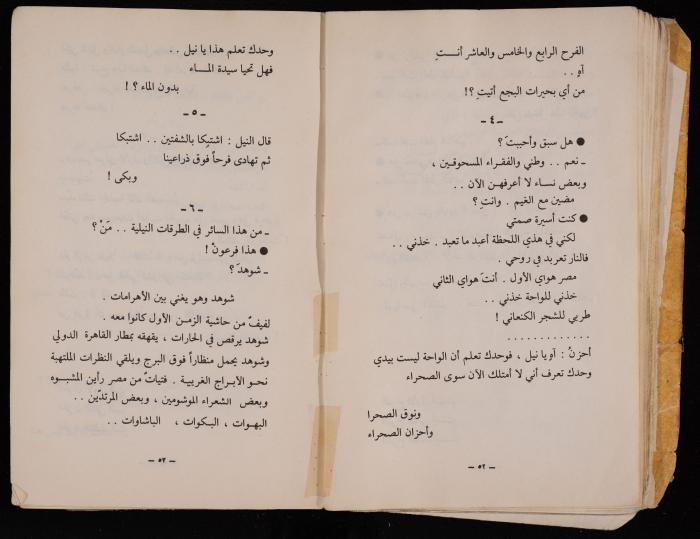 الفرح الرابع والخامس والعاشر أنتِ
آهِ ..
من أي بحيرات البجع أتيتِ ؟!
ـ ٤ ـ
● هل سبق وأحببتَ ؟
ـ نعم .. وطني والفقراء المسحوقين ،
وبعض نساء لا أعرفهن الآن ..
مضين مع الغيم . وانتِ ؟
● كنت أسيرة صمتي
لكني في هذي اللحظة أعبد ما تعبد . خذني ..
فالنار تعربد في روحي .
مصر هواي الأول . أنتَ هواي الثاني
خذني للواحة خذني ..
طربي للشجر الكنعاني !
. . . . . . . . . . . . .
أحزنُ : آهِ يا نيل ، فوحدك تعلم أن الواحة ليست بيدي
وحدك تعرف أني لا أمتلك الآن سوى الصحراء
ونوق الصحرا
وأحزان الصحراء
ـ ٥٢ ـ
وحدك تعلم هذا يا نيل ..
فهل تحيا سيدة المـاء
بدون الماء ؟ !
ـ ٥ ـ
قال النيل : اشتبِكا بالشفتين .. اشتبكا
ثم تهادى فرحاً فوق ذراعينا
وبكى !
ـ ٦ ـ
ـ من هذا السائر في الطرقات النيلية .. مَنْ ؟
● هذا فرعونْ !
ـ شوهدَ ؟
شوهد وهو يغني بين الأهرامات .
لفيفٌ من حاشية الزمـن الأول كانوا معه .
شوهد يرقص في الحارات ، يقهقه بمطار القاهرة الدولي
وشوهد يحمل منظاراً فوق البرج ويلقي النظرات الملتهبة
نحـو الأبراج الغربيـة . فتياتٌ من مصر رأين المشبـوه
وبعض الشعراء الموشومين ، وبعض المرتدّين ..
البهـوات ، البكـوات ، الباشاوات ..
ـ ٥٣ ـ